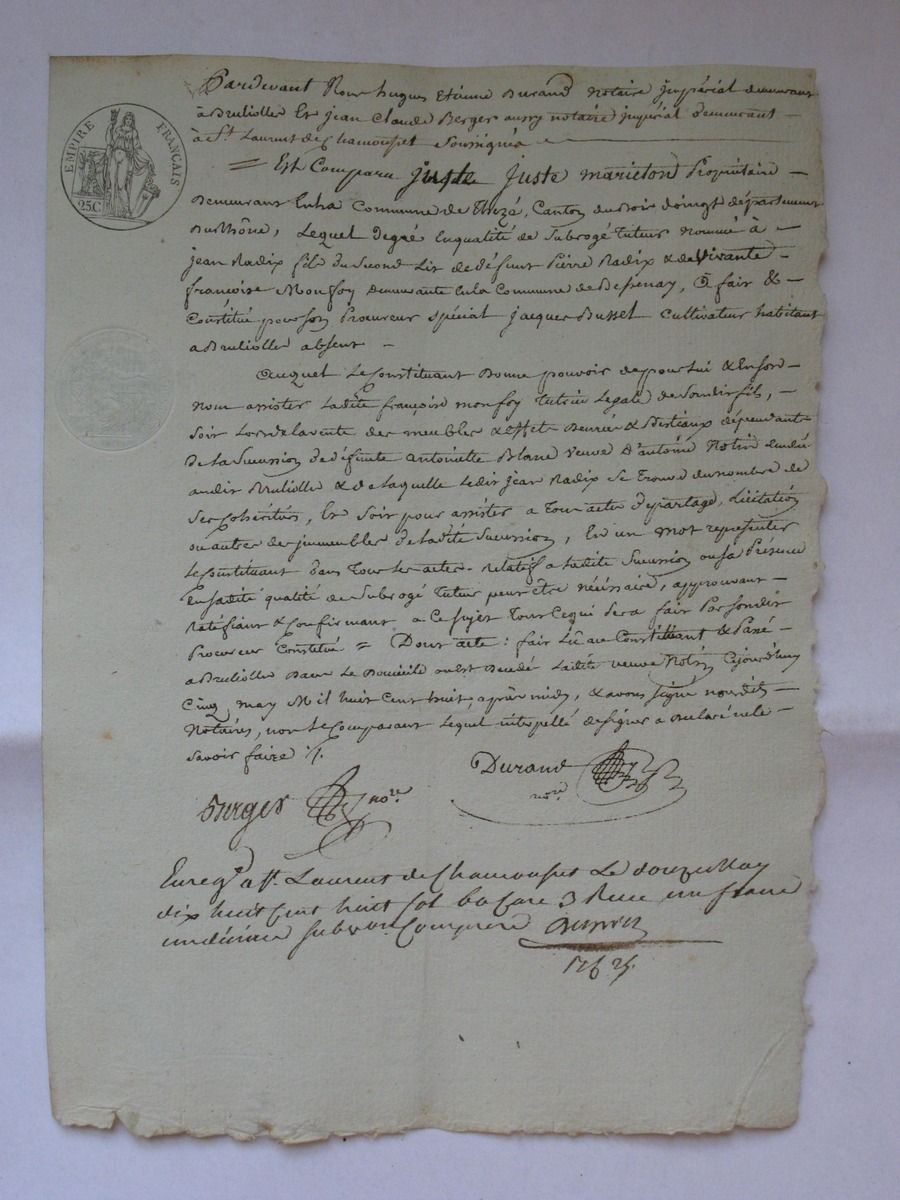 EMPIRE FRANÇAIS
25C
Pardevant Nous hugues Etienne Durand notaire jmpérial demeurant
à Brullolle Et jean Claude Berger aussy notaire jmpérial demeurant
à St. Laurent de Chamousset Soussignés
= Est Comparu juste Juste marieton Propriétaire
Demeurant Enla Commune de Thezé, Canton du Bois doingt département
Du Rhône, Lequel degré Enqualité de Subrogé Tuteur Nommé à
jean Radix fils du Second Lit de défunt Pierre Radix & de Vivante
françoise Monfoy demeurante Enla Commune de Bessenay, a fait &
Constitué pour son Procureur spécial jacques Busset Cultivateur habitant
a Brullolle absent
Auquel Le Constituant Donne pouvoir de pour Lui & En son
Nom assister Ladite françoise monfoy tutrice Légale de Sondit fils,
Soit Lors de la vente des meubles & effets Denrées & Bestiaux dépendants
de La Succession de défunte antoinette Blanc veuve d'antoine Notin dudit
audit Brullolle & de Laquelle Ledit jean Radix se trouve du nombre de
Ses Cohéritiers, Et Soit pour assister a Tout actes de partage, Licitation
ou autres des jmmeubles de Ladite Succession, En un mot représenter
Le Constituant dans Tous Les actes relatifs a Ladite Succession ou sa Présence
En sadite qualité de Subrogé Tuteur peut être nécessaire, approuvant
Ratifiant & Confirmant a Ce sujet Tout Cequi Sera fait Par sondit
Procureur Constitué = Dont acte : fait Lû au Constituant & Passé
a Brullolle Dans Le Domicile ou Est décédé Ladite veuve Notin Cejourd'huy
Cinq may Mil huit Cent huit, après midy, & avons signé nousdits
Notaires, non Le Comparant Lequel interpellé de signer a déclaré ne le
savoir faire ./.
Durand
nore
Berger nore
Enregé a St. Laurent de Chamousset Le douze May
dix huit cent huit fol 60 case 3 Reçu un franc
un décime subvon Comprise
1f 25.